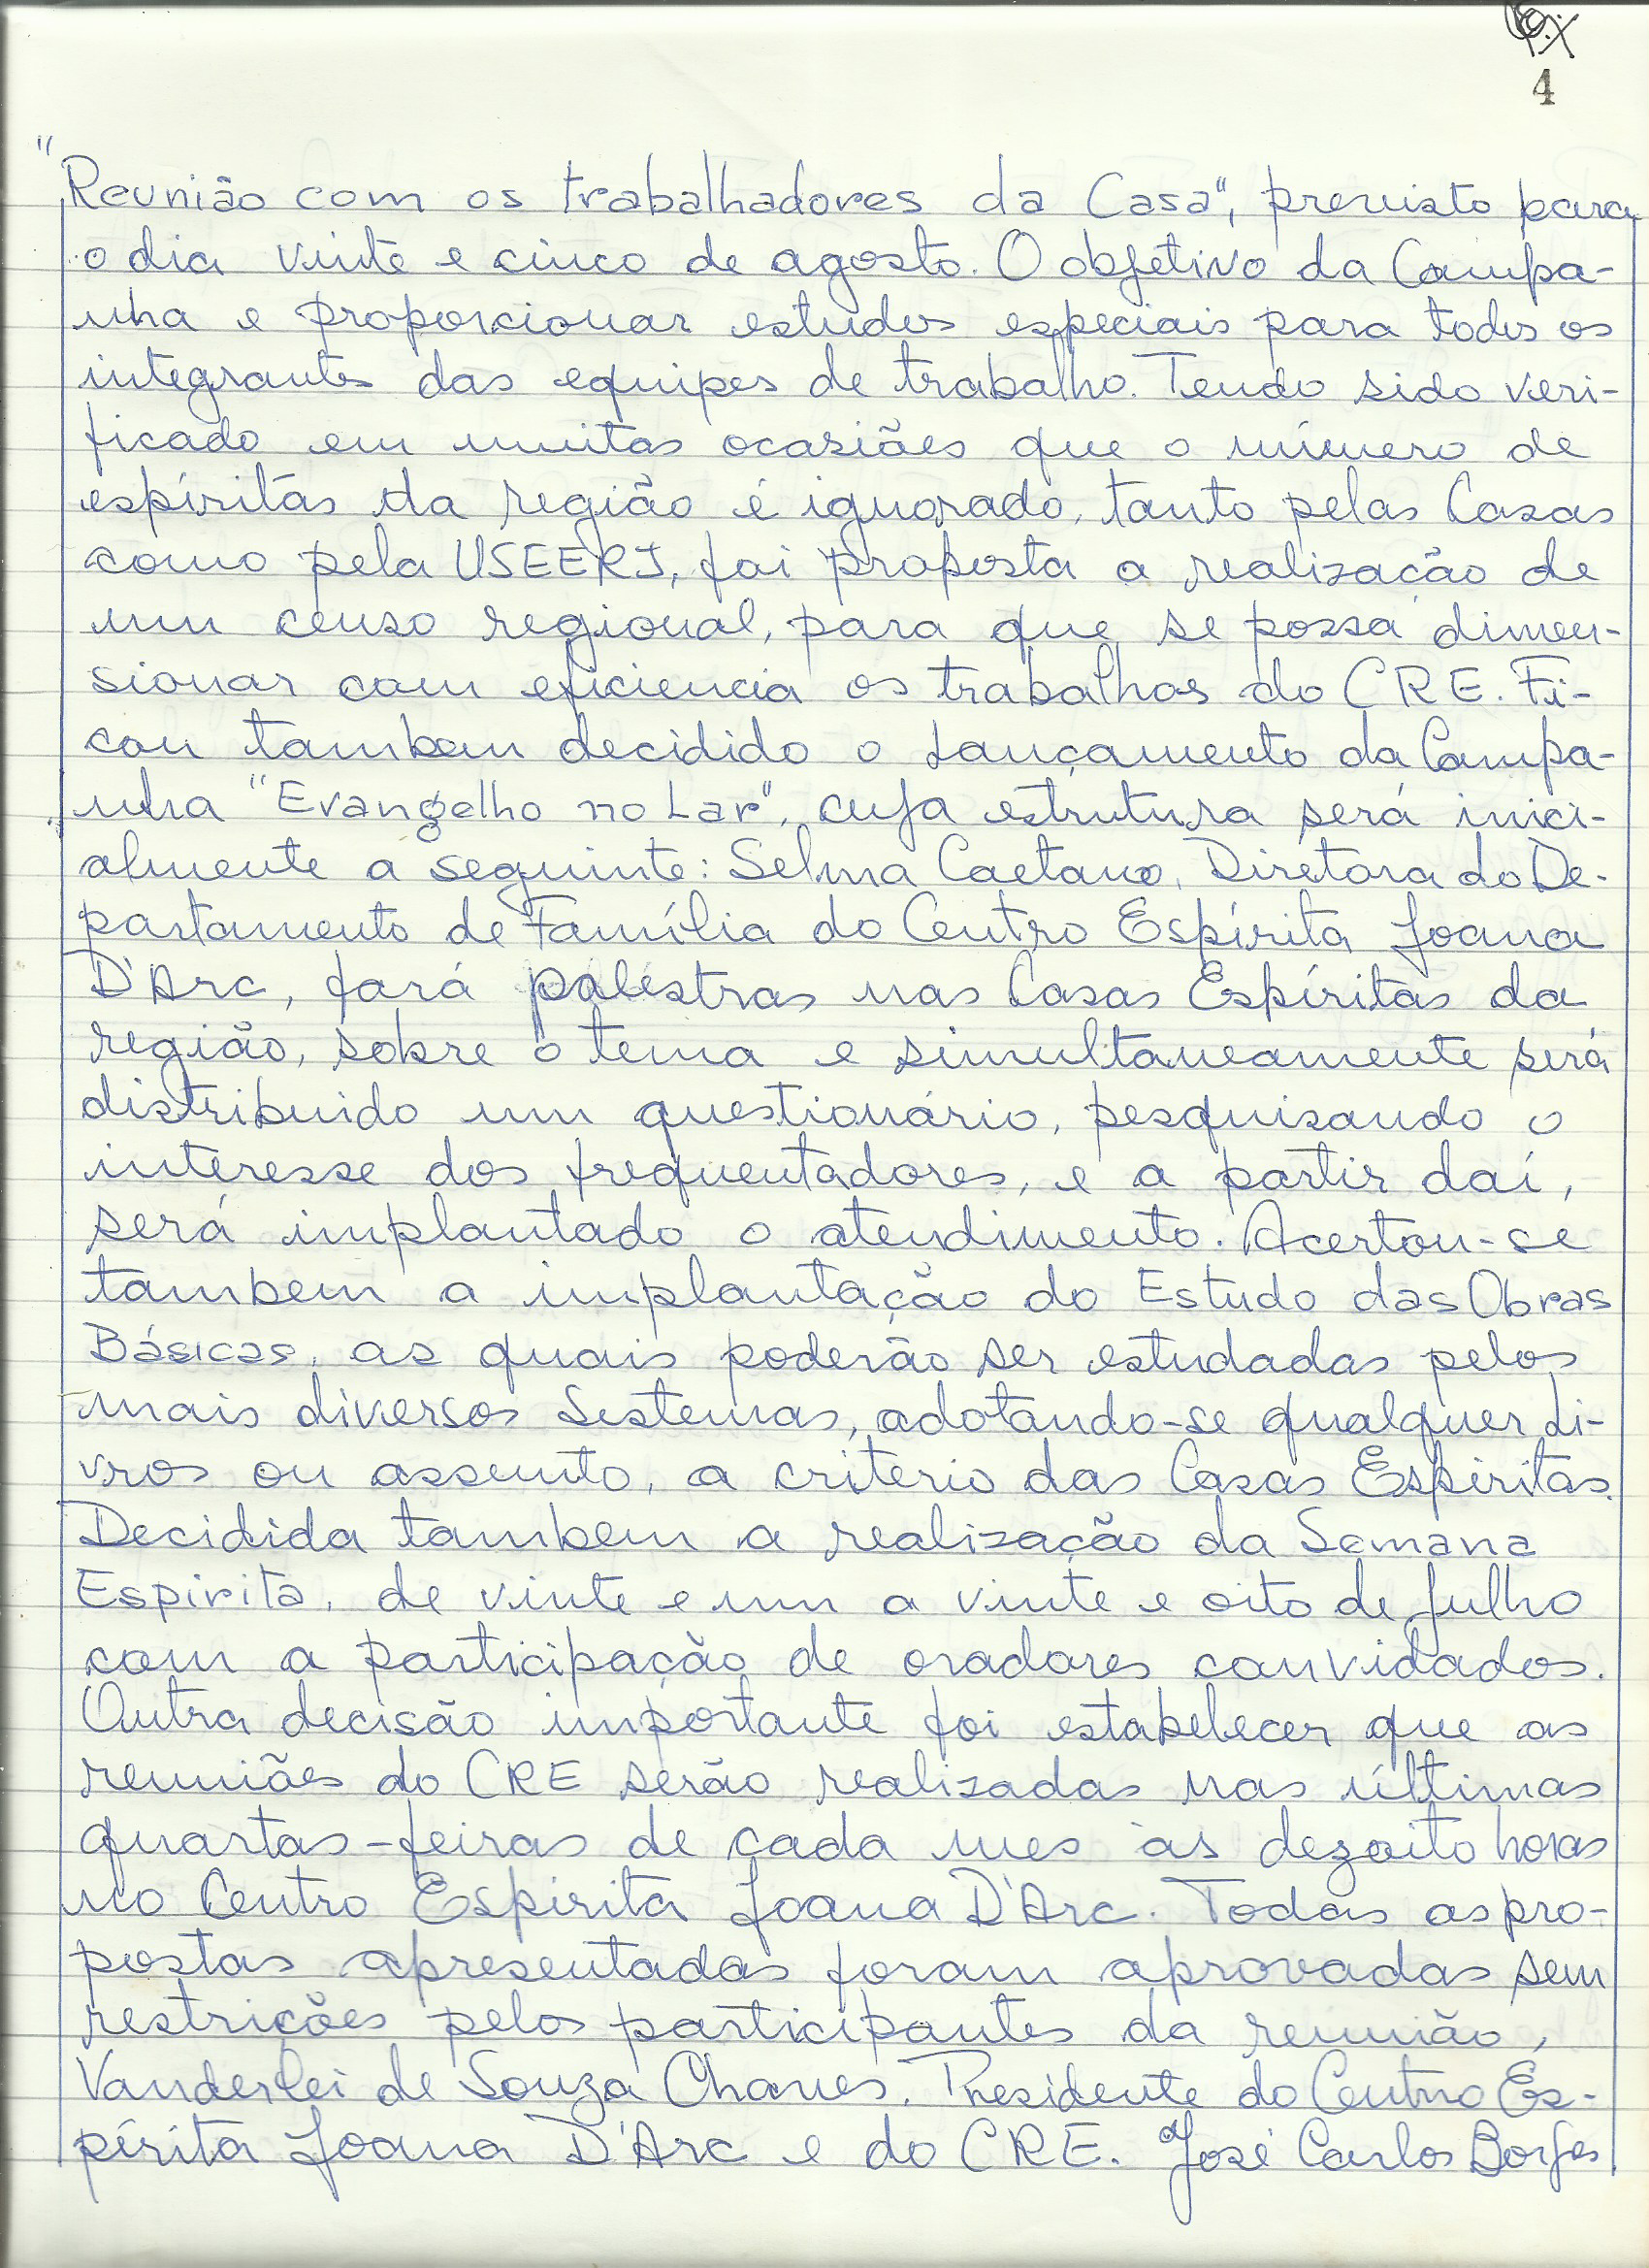 4
"Reunião com os trabalhadores da Casa", previsto para
o dia vinte e cinco de agosto. O objetivo da Campa-
nha e proporcionar estudos especiais para todos os
integrantes das equipes de trabalho. Tendo sido veri-
ficado em muitas ocasiões que o número de
espíritas da região é ignorado, tanto pelas Casas
como pela USEERJ, foi proposta a realização de
um censo regional, para que se possa dimen-
sionar com eficiencia os trabalhos do CRE. Fi-
cou tambem decidido o lançamento da Campa-
nha "Evangelho no Lar", cuja estrutura será inici-
almente a seguinte: Selma Caetano, Diretora do De-
partamento de Família do Centro Espírita Joana
D'Arc, fará palestras nas Casas Espíritas da
região, sobre o tema e simultaneamente será
distribuido um questionário, pesquisando o
interesse dos frequentadores, e a partir daí,
será implantado o atendimento. Acertou-se
tambem a implantação do Estudo das Obras
Básicas, as quais poderão ser estudadas pelos
mais diversos Sistemas, adotando-se qualquer li-
vros ou assunto, a criterio das Casas Espíritas.
Decidida tambem a realização da Semana
Espirita, de vinte e um a vinte e oito de julho
com a participação de oradores convidados.
Outra decisão importante foi estabelecer que as
reuniões do CRE serão realizadas nas últimas
quartas-feiras de cada mes às dezoito horas
no Centro Espirita Joana D'Arc. Todas as pro-
postas apresentadas foram aprovadas sem
restrições pelos participantes da reunião,
Vanderlei de Souza Chaves, Presidente do Centro Es-
pírita Joana D'Arc e do CRE. José Carlos Borges